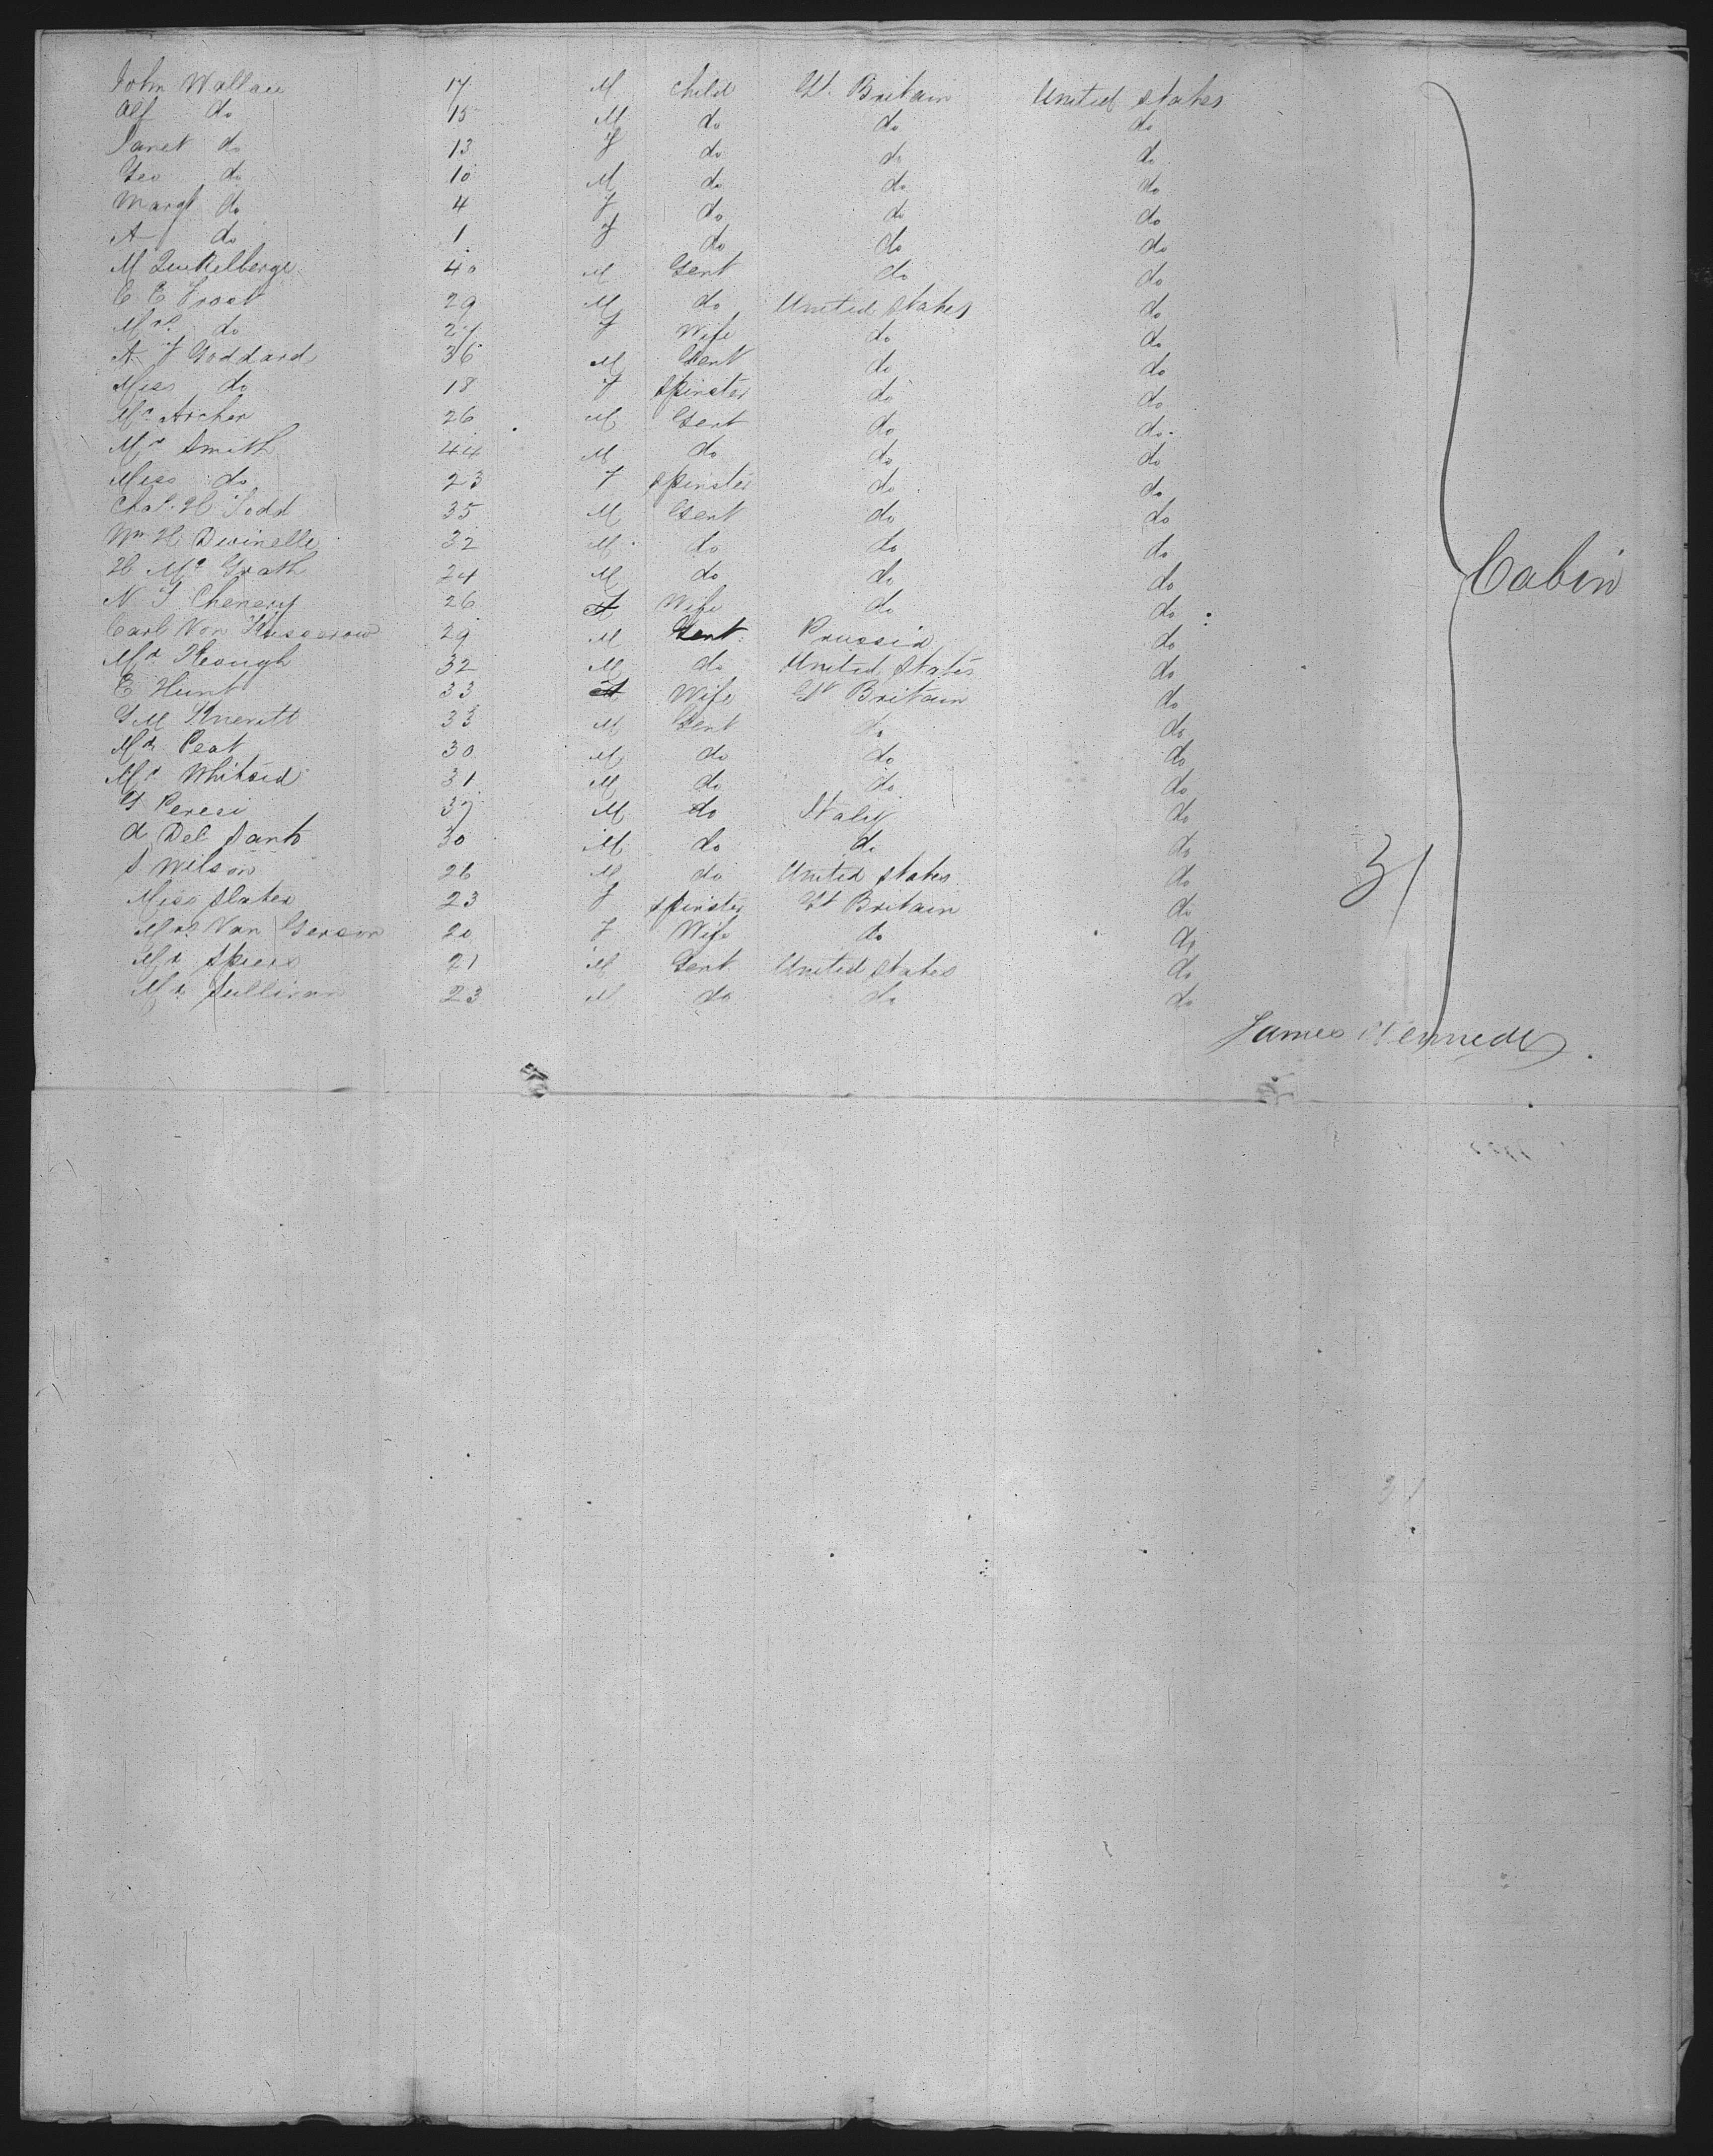 John Wallace 17 M Child Gt. Britain United States
Alf do 15 M do do do
Janet do 13 F do do do
Geo do 10 M do do do
Margt do 4 F do do do
A do 1 F do do do
M 40 M Gent do do
C E Frost 29 M do United States do
Mrs. do 27 F Wife do do
A. F Goddard 36 M Gent do do
Miss do 18 F Spinster do do
Mr Archer 26 M Gent do do
Mr Smith 44 M do do do
Miss do 23 F Spinster do do
Chas. H Todd 35 M Gent do do
Wm H Dwinelle 32 M do do do
H Mc Grath 24 M do do do
N. S Chenery 26 Wife do do
Carl Von Kusserow 29 M Gent Prussia do
Mr Keough 32 M do United States do
E Hunt 33 Wife Gt Britain do
G M Kneritt 33 M Gent do do
Mr Peat 30 M do do do
Mr Whitsid 31 M do do do
G Peresi 37 M do Italy do
A Del Santo 30 M do do do
S Wilson 26 M do United States do
Miss Slater 23 F Spinster Gt Britain do
Mrs Van Gerson 20 F Wife do do
Mr Spiers 21 M Gent United States do
Mr Sullivan 23 M do do do
Cabin
31
James Kennedy
31